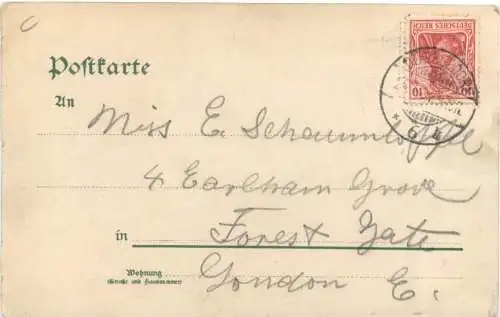 C
DEUTSCHES REICH
10 10
Postkarte
An
Miss E. Schaumlöffel
4 Earlham Grove
in Forest Gate
Wohnung
(Straße und Hausnummer)
London E.